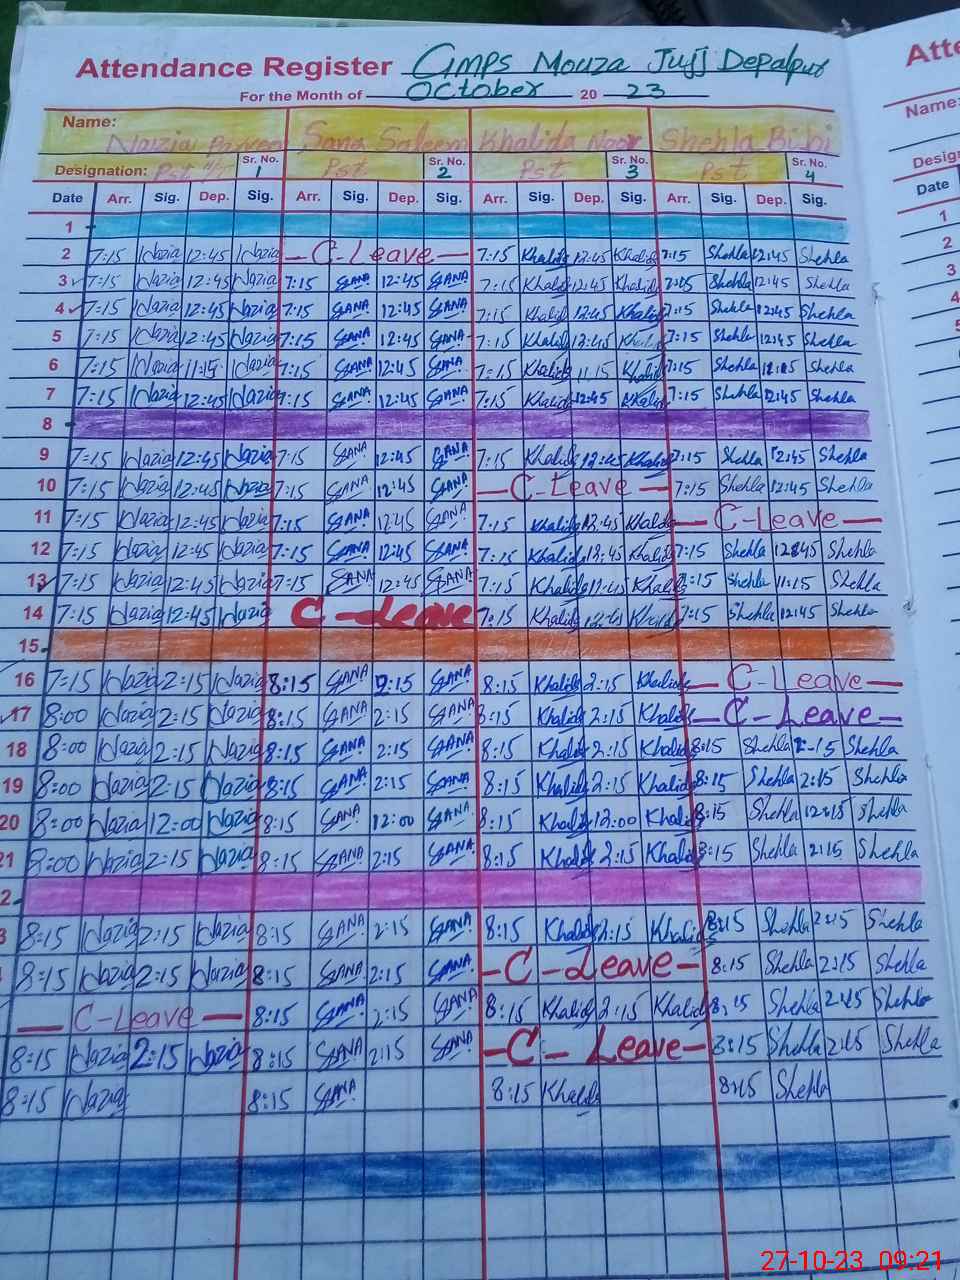 Attendance Register GMPS Mouza Jujj Depalpur
For the Month of October 20 23
Name: Nazia Parveen Sana Saleem Khalida Noor Shehla Bibi
Designation: Pst Sr. No. 1 Pst Sr. No. 2 Pst Sr. No. 3 Pst Sr. No. 4
Date Arr. Sig. Dep. Sig. Arr. Sig. Dep. Sig. Arr. Sig. Dep. Sig. Arr. Sig. Dep. Sig.
1
2 7:15 Nazia 12:45 Nazia C-Leave 7:15 Khalida 12:45 Khalida 7:15 Shehla 12:45 Shehla
3 7:15 Nazia 12:45 Nazia 7:15 SANA 12:45 SANA 7:15 Khalida 12:45 Khalida 7:15 Shehla 12:45 Shehla
4 7:15 Nazia 12:45 Nazia 7:15 SANA 12:45 SANA 7:15 Khalida 12:45 Khalida 7:15 Shehla 12:45 Shehla
5 7:15 Nazia 12:45 Nazia 7:15 SANA 12:45 SANA 7:15 Khalida 12:45 Khalida 7:15 Shehla 12:45 Shehla
6 7:15 Nazia 11:15 Nazia 7:15 SANA 12:45 SANA 7:15 Khalida 11:15 Khalida 7:15 Shehla Shehla
7 7:15 Nazia 12:45 Nazia 7:15 SANA 12:45 SANA 7:15 Khalida 12:45 Khalida 7:15 Shehla 12:45 Shehla
8
9 7:15 Nazia 12:45 Nazia 7:15 SANA 12:45 SANA 7:15 Khalida 12:45 Khalida 7:15 Shehla 12:45 Shehla
10 7:15 Nazia 12:45 Nazia 7:15 SANA 12:45 SANA C-Leave 7:15 Shehla 12:45 Shehla
11 7:15 Nazia 12:45 Nazia 7:15 SANA 12:45 SANA 7:15 Khalida 12:45 Khalida C-Leave
12 7:15 Nazia 12:45 Nazia 7:15 SANA 12:45 SANA 7:15 Khalida 12:45 Khalida 7:15 Shehla 12:45 Shehla
13 7:15 Nazia 12:45 Nazia 7:15 SANA 12:45 SANA 7:15 Khalida Khalida 7:15 Shehla 11:15 Shehla
14 7:15 Nazia 12:45 Nazia C-Leave 7:15 Khalida 12:45 Khalida 7:15 Shehla 12:45 Shehla
15
16 7:15 Nazia 2:15 Nazia 8:15 SANA 2:15 SANA 8:15 Khalida 2:15 Khalida C-Leave
17 8:00 Nazia 2:15 Nazia 8:15 SANA 2:15 SANA 8:15 Khalida 2:15 Khalida C-Leave
18 8:00 Nazia 2:15 Nazia 8:15 SANA 2:15 SANA 8:15 Khalida 2:15 Khalida 8:15 Shehla 2:15 Shehla
19 8:00 Nazia 2:15 Nazia 8:15 SANA 2:15 SANA 8:15 Khalida 2:15 Khalida 8:15 Shehla 2:15 Shehla
20 8:00 Nazia 12:00 Nazia 8:15 SANA 12:00 SANA 8:15 Khalida 12:00 Khalida 8:15 Shehla 12:15 Shehla
21 8:00 Nazia 2:15 Nazia 8:15 SANA 2:15 SANA 8:15 Khalida 2:15 Khalida 8:15 Shehla 2:15 Shehla
2
3 8:15 Nazia 2:15 Nazia 8:15 SANA 2:15 SANA 8:15 Khalida 2:15 Khalida 8:15 Shehla 2:15 Shehla
8:15 Nazia 2:15 Nazia 8:15 SANA 2:15 SANA C-Leave 8:15 Shehla 2:15 Shehla
C-Leave 8:15 SANA 2:15 SANA 8:15 Khalida 2:15 Khalida 8:15 Shehla 2:15 Shehla
8:15 Nazia 2:15 Nazia 8:15 SANA 2:15 SANA C-Leave 8:15 Shehla 2:15 Shehla
8:15 Nazia 8:15 SANA 8:15 Khalida 8:15 Shehla
Atte
Name:
Desig
Date
1
2
3
4
5
27-10-23 09:21